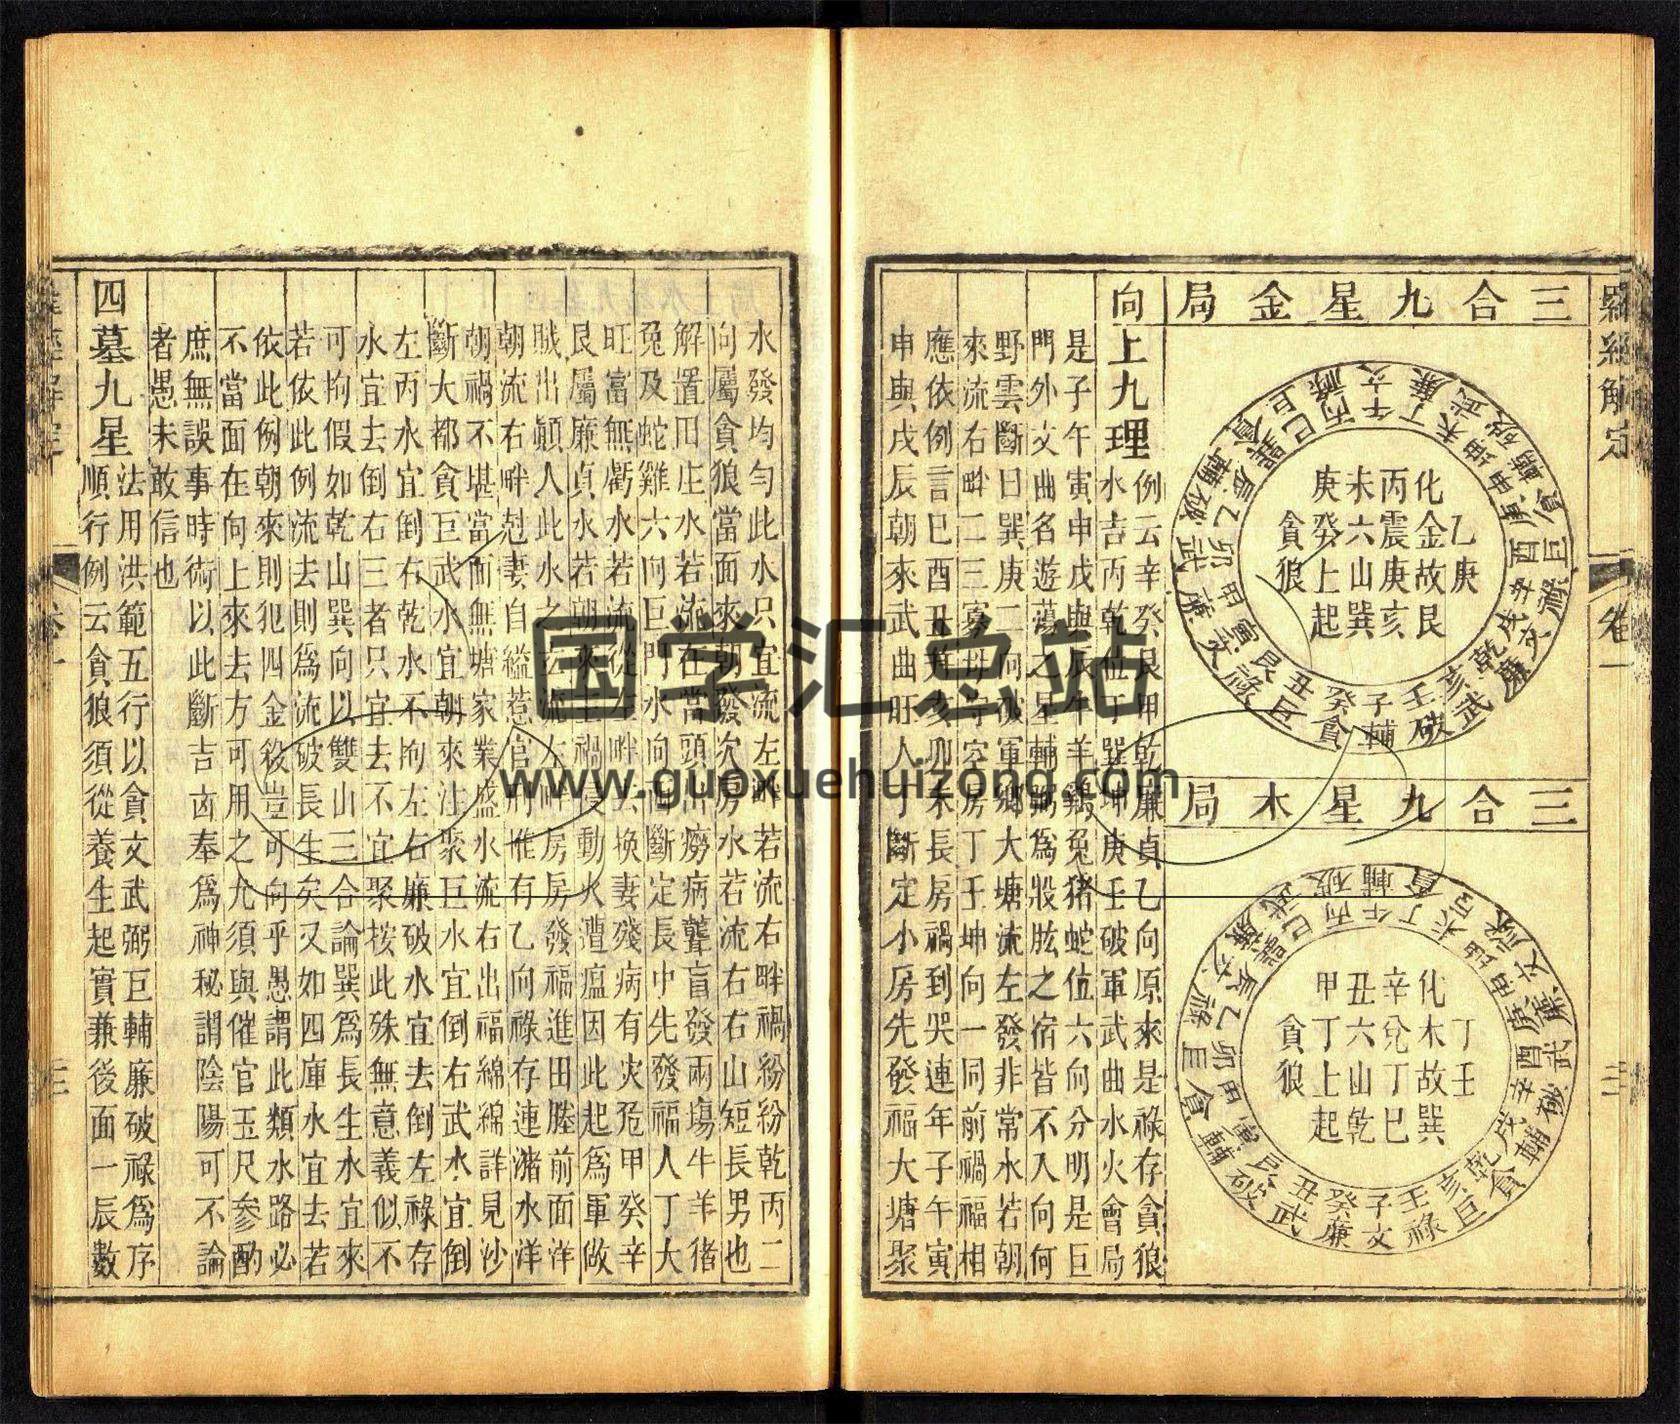 羅經解定 卷一
三合九星金局
乙庚
化金故艮
丙震庚亥
未六山巽
庚癸上起
貪狼
子癸丑艮寅甲卯乙辰巽巳丙午丁未坤申庚酉辛戌乾亥壬
輔貪巨祿文廉武破輔貪巨祿文廉武破輔貪巨祿文廉武破
三合九星木局
丁壬
化木故巽
辛兌丁巳
丑六山乾
甲丁上起
貪狼
子癸丑艮寅甲卯乙辰巽巳丙午丁未坤申庚酉辛戌乾亥壬
文廉武破輔貪巨祿文廉武破輔貪巨祿文廉武破輔貪巨祿
向上九理
例云辛癸艮甲乾廉貞乙向原來是祿存貪狼
水吉丙乾位丁巽坤庚壬破軍武曲水火會局
是子午寅申戌與辰午羊鷄兔猪蛇位六向分明是巨
門外文曲名遊蕩之星輔弼為殺肱之宿皆不入向何
野雲斷曰巽庚二向破軍鄉大塘流左發非常水若朝
來流右畔二三寡母守空房丁壬坤向一同前禍福相
應依例言巳酉丑并亥卯未長房禍到哭連年子午寅
申與戌辰朝來武曲旺人丁斷定小房先發福大塘聚
水發均勻此水只宜流左畔若流右畔禍紛紛乾丙二
向屬貪狼當面來朝發次房水若流右右山短長男也
解置田庄水若流在當頭出癆病聾盲發兩塲牛羊猪
兔及蛇雞六向巨門水向西斷定長中先發福人丁大
旺富無虧水若流從左畔去換妻殘病有灾危甲癸辛
艮屬廉貞水若朝來主禍侵動火遭瘟因此起為軍做
賊出顛人此水之去流左畔房房發福進田塍前面洋
朝流右畔尅妻自縊惹官刑惟有乙向祿存連潴水洋
朝禍不堪當面無塘家業盛水流右出福綿綿詳見沙
斷大都貪巨武水宜朝來注聚巨水宜倒右武水宜倒
左丙水宜倒右乾水不拘左右廉破水宜去倒左祿存
水宜去倒右三者只宜去不宜聚按此殊無意義似不
可拘假如乾山巽向以雙山三合論巽為長生水宜來
若依此例流去則為流破長生矣又如四庫水宜去若
依此例朝來則犯四金殺豈可向乎愚謂此類水路必
不當面在向上來去方可用之尤須與催官玉尺參酌
庶無誤事時術以此斷吉凶奉為神秘謂陰陽可不論
者愚未敢信也
四墓九星
法用洪範五行以貪文武弼巨輔廉破祿為序
順行例云貪狼須從養生起實兼後面一辰數
国学汇总站
www.guoxuehuizong.com